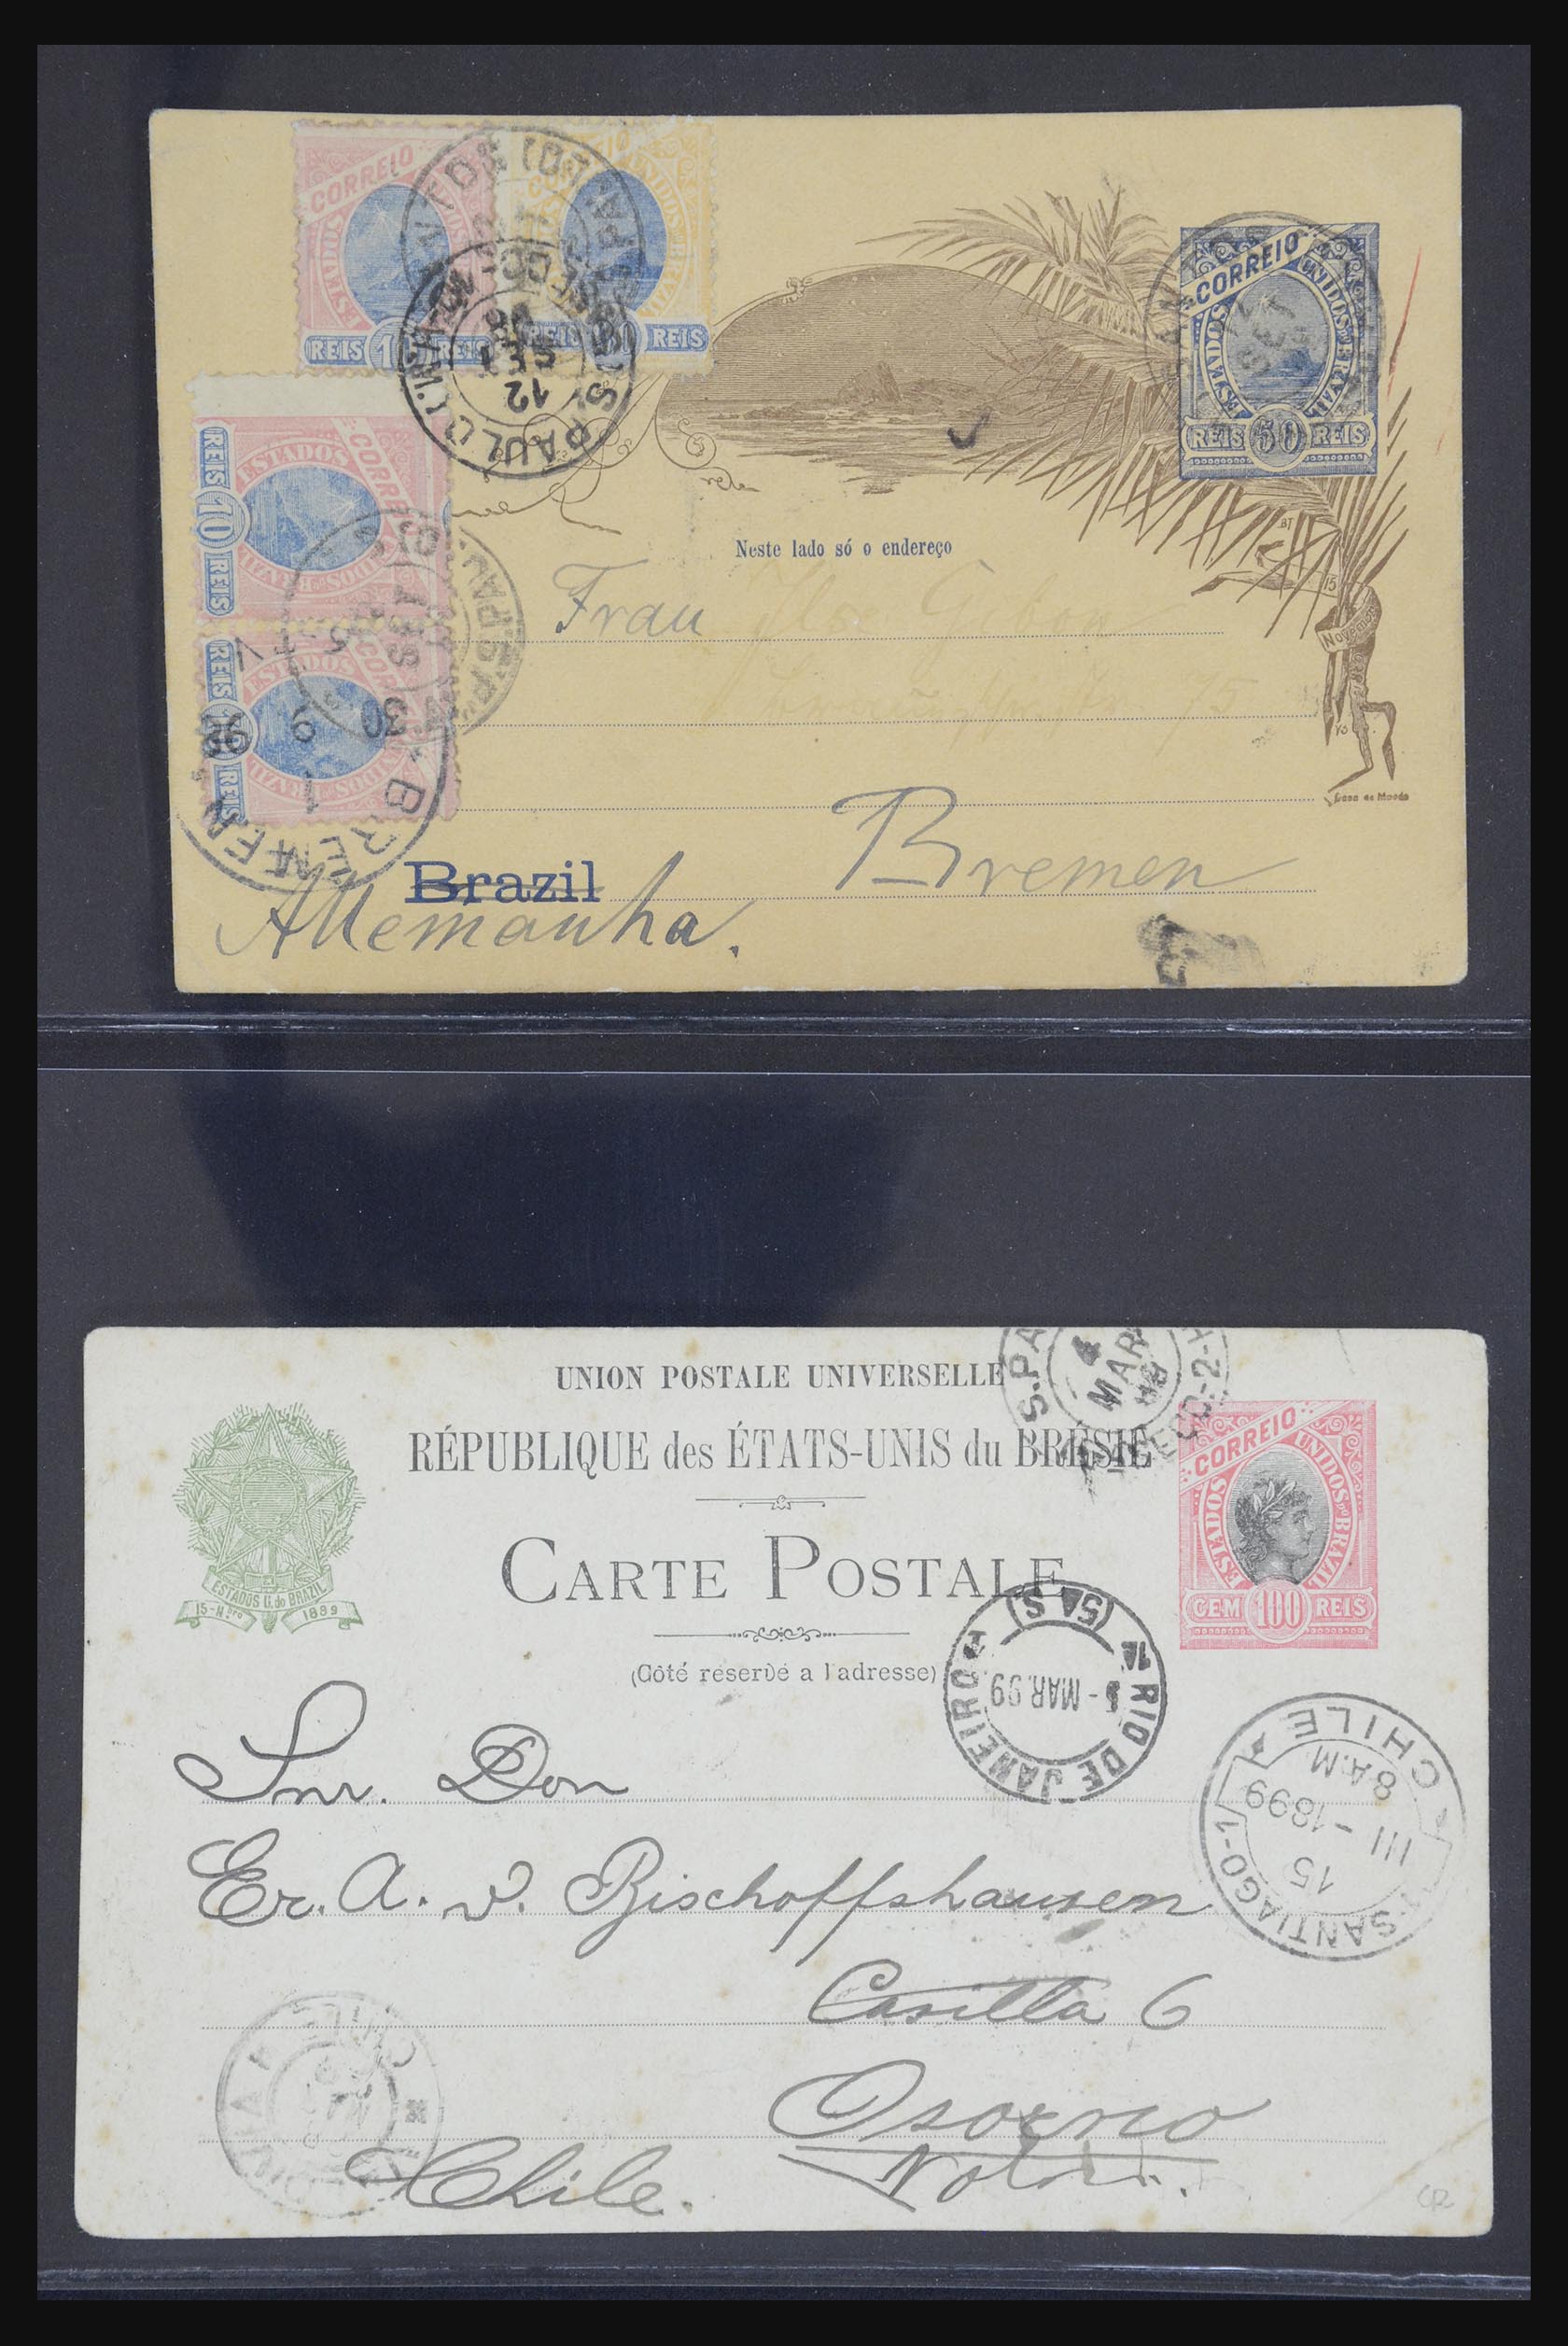 CORREIO
ESTADOS
REIS 10 REIS
UNIDOS DO BRAZIL
REIS REIS
CORREIO
ESTADOS UNIDOS DO BRAZIL
REIS 50 REIS
12
S. PAULO
Neste lado só o endereço
15
Novembro
CORREIO
ESTADOS UNIDOS DO BRAZIL
REIS 10 REIS
ESTADOS UNIDOS DO BRAZIL
REIS REIS
Frau Ilse
75
BREMEN
1 9 98
Bremen
Brazil
Allemanha.
Casa da Moeda
UNION POSTALE UNIVERSELLE
RÉPUBLIQUE des ÉTATS-UNIS du BRÉSIL
CARTE POSTALE
(Côté reservé a l'adresse)
ESTADOS U. do BRAZIL
15-N.bro 1889
4
MAR
CORREIO
ESTADOS UNIDOS DO BRAZIL
CEM 100 REIS
RIO DE JANEIRO
MAR.99
(5A S)
SANTIAGO-1
CHILE
15
III -1899
8 A.M.
Snr. Don
Er. A. v. Bischoffshausen
Casilla 6
Osorno
Chile.
CHILE